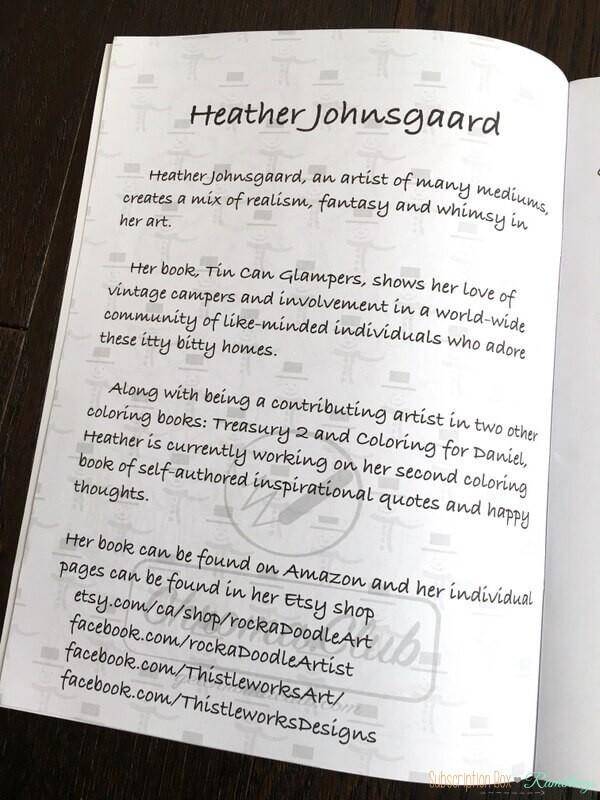 Heather Johnsgaard
Heather Johnsgaard, an artist of many mediums,
creates a mix of realism, fantasy and whimsy in
her art.
Her book, Tin Can Glampers, shows her love of
vintage campers and involvement in a world-wide
community of like-minded individuals who adore
these itty bitty homes.
Along with being a contributing artist in two other
coloring books: Treasury 2 and Coloring for Daniel,
Heather is currently working on her second coloring
book of self-authored inspirational quotes and happy
thoughts.
Her book can be found on Amazon and her individual
pages can be found in her Etsy shop
etsy.com/ca/shop/rockaDoodleArt
facebook.com/rockaDoodleArtist
facebook.com/ThistleworksArt/
facebook.com/ThistleworksDesigns
Subscription Box Ramblings